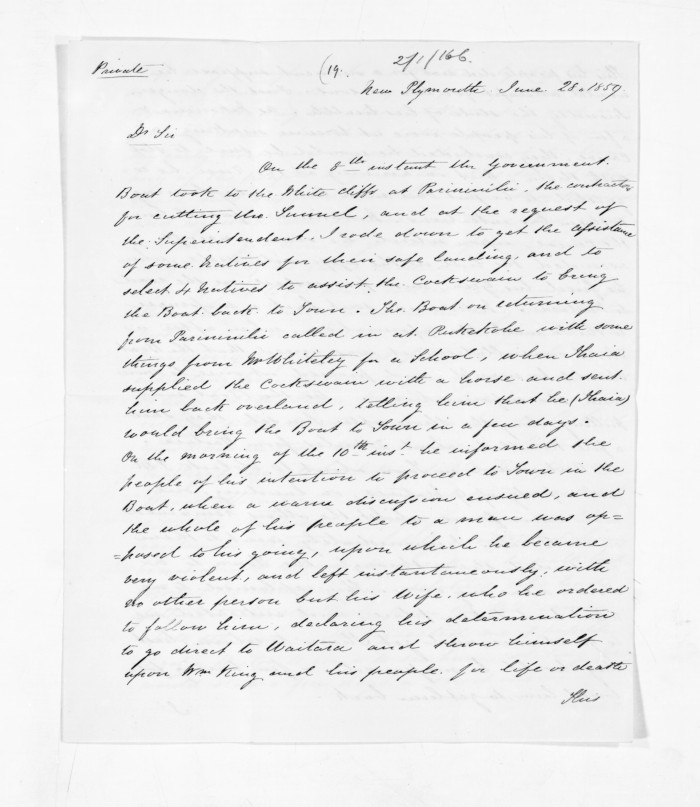 Private
(19.
2/1/166.
New Plymouth June 28. 1859
Dr Sir
On the 8th instant the Government
Boat took to the White Cliffs at Parininihi, the contractor
for cutting the Tunnel, and at the request of
the Superintendent, I rode down to get the assistance
of some Natives for their safe landing, and to
select 4 Natives to assist the Cockswain to bring
the Boat back to Town. The Boat on returning
from Parininihi called in at Pukekohe with some
things from Mr Whiteley for a School, when Ihaia
supplied the Cockswain with a horse and sent
him back overland, telling him that he (Ihaia)
would bring the Boat to Town in a few days.
On the morning of the 10th inst. he informed the
people of his intention to proceed to Town in the
Boat, when a warm discussion ensued, and
the whole of his people to a man was op=
=posed to his going, upon which he became
very violent, and left instantaneously, with
no other person but his Wife, who he ordered
to follow him, declaring his determination
to go direct to Waitara and throw himself
upon Wm King and his people for life or death
This